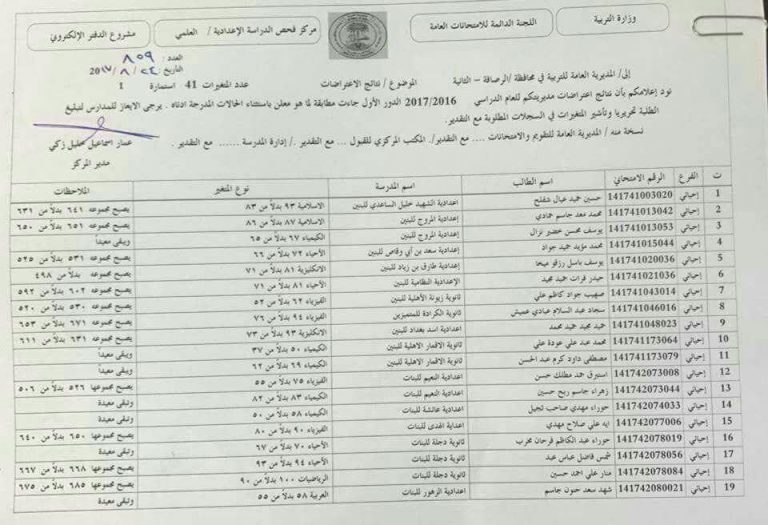 وزارة التربية
اللجنة الدائمة للامتحانات العامة
مركز فحص الدراسة الإعدادية / العلمي
مشروع الدفتر الإلكتروني
العدد: ٨٥٩
التاريخ: ٢٤ / ٨ / ٢٠١٧
إلى/ المديرية العامة للتربية في محافظة /الرصافة – الثانية الموضوع / نتائج الاعتراضات عدد المتغيرات 41 استمارة 1
نود إعلامكم بأن نتائج اعتراضات مديريتكم للعام الدراسي 2017/2016 الدور الأول جاءت مطابقة لما هو معلن باستثناء الحالات المدرجة ادناه . يرجى الايعاز للمدارس لتبليغ
الطلبة تحريريا وتأشير المتغيرات في السجلات المطلوبة مع التقدير.
نسخة منه / المديرية العامة للتقويم والامتحانات .... مع التقدير/. المكتب المركزي للقبول ... مع التقدير /. إدارة المدرسة ...... مع التقدير .
عمار اسماعيل خليل زكي
مدير المركز
ت الفرع الرقم الامتحاني اسم الطالب اسم المدرسة نوع المتغير الملاحظات
1 إحيائي 141741003020 حسين حميد عيال شفلح اعدادية الشهيد خليل الساعدي للبنين الاسلامية ٩٣ بدلاً من ٨٣ يصبح مجموعه ٦٤١ بدلاً من ٦٣١
2 إحيائي 141741013042 محمد معد جاسم حمادي إعدادية المروج للبنين الاسلامية ٨٧ بدلاً من ٨٦ يصبح مجموعه ٦٥١ بدلاً من ٦٥٠
3 إحيائي 141741013053 يوسف محسن خضير نزال إعدادية المروج للبنين الكيمياء ٦٧ بدلاً من ٦٥ ويبقى معيداً
4 إحيائي 141741015044 محمد مؤيد حميد جواد إعدادية سعد بن أبي وقاص للبنين الأحياء ٧٢ بدلاً من ٦٦ يصبح مجموعه ٥٣١ بدلاً من ٥٢٥
5 إحيائي 141741020036 يوسف باسل رزقو ميخا إعدادية طارق بن زياد للبنين الانكليزية ٨١ بدلاً من ٧١ يصبح مجموعه بدلاً من ٤٩٨
6 إحيائي 141741021036 حيدر فرات حميد مجيد الإعدادية النظامية للبنين الأحياء ٨١ بدلاً من ٧١ يصبح مجموعه ٦٠٢ بدلاً من ٥٩٢
7 إحيائي 141741043014 صهيب جواد كاظم علي ثانوية زيونة الأهلية للبنين الفيزياء ٦٢ بدلاً من ٥٢ يصبح مجموعه ٥٣٠ بدلاً من ٥٢٠
8 إحيائي 141741046016 سجاد عبد السلام عبادي عميش ثانوية الكرادة للمتميزين الفيزياء ٩٤ بدلاً من ٧٦ يصبح مجموعه ٦٧١ بدلاً من ٦٥٣
9 إحيائي 141741048023 حميد مجيد حميد محمد إعدادية اسد بغداد للبنين الانكليزية ٩٣ بدلاً من ٧٣ يصبح مجموعه ٦٣١ بدلاً من ٦١١
10 إحيائي 141741173064 محمد عبد علي عودة علي ثانوية الاقمار الاهلية للبنين الكيمياء ٥٠ بدلاً من ٣٧ ويبقى معيداً
11 إحيائي 141741173079 مصطفى داود كرم عبد الحسن ثانوية الاقمار الاهلية للبنين الكيمياء ٦٩ بدلاً من ٦٢ ويبقى معيداً
12 إحيائي 141742073008 استبرق حمد مطلك حسن اعدادية النعيم للبنات الفيزياء ٧٥ بدلاً من ٥٥ يصبح مجموعها ٥٢٦ بدلاً من ٥٠٦
13 إحيائي 141742073044 زهراء جاسم ربح حسين اعدادية النعيم للبنات الأحياء ٨٣ بدلاً من ٨٢ وتبقى معيدة
14 إحيائي 141742074033 حوراء مهدي صاحب ثجيل اعدادية عائشة للبنات الكيمياء ٥٨ بدلاً من ٥٠ وتبقى معيدة
15 إحيائي 141742077006 ايه علي صلاح مهدي إعداية الهدى للبنات الفيزياء ٩٠ بدلاً من ٨٠ يصبح مجموعها ٦٥٠ بدلاً من ٦٤٠
16 إحيائي 141742078019 حوراء عبد الكاظم فرحان محرب ثانوية دجلة للبنات الأحياء ٧٠ بدلاً من ٦٧ وتبقى معيدة
17 إحيائي 141742078056 شمس فاضل عباس عبد ثانوية دجلة للبنات الأحياء ٩٤ بدلاً من ٩٣ يصبح مجموعها ٦٦٨ بدلاً من ٦٦٧
18 إحيائي 141742078084 منار علي احمد حسين ثانوية دجلة للبنات الرياضيات ١٠٠ بدلاً من ٩٠ يصبح مجموعها ٦٨٥ بدلاً من ٦٧٥
19 إحيائي 141742080021 شهد سعد حنون جاسم اعدادية الزهور للبنات العربية ٥٨ بدلاً من ٥٥ وتبقى معيدة